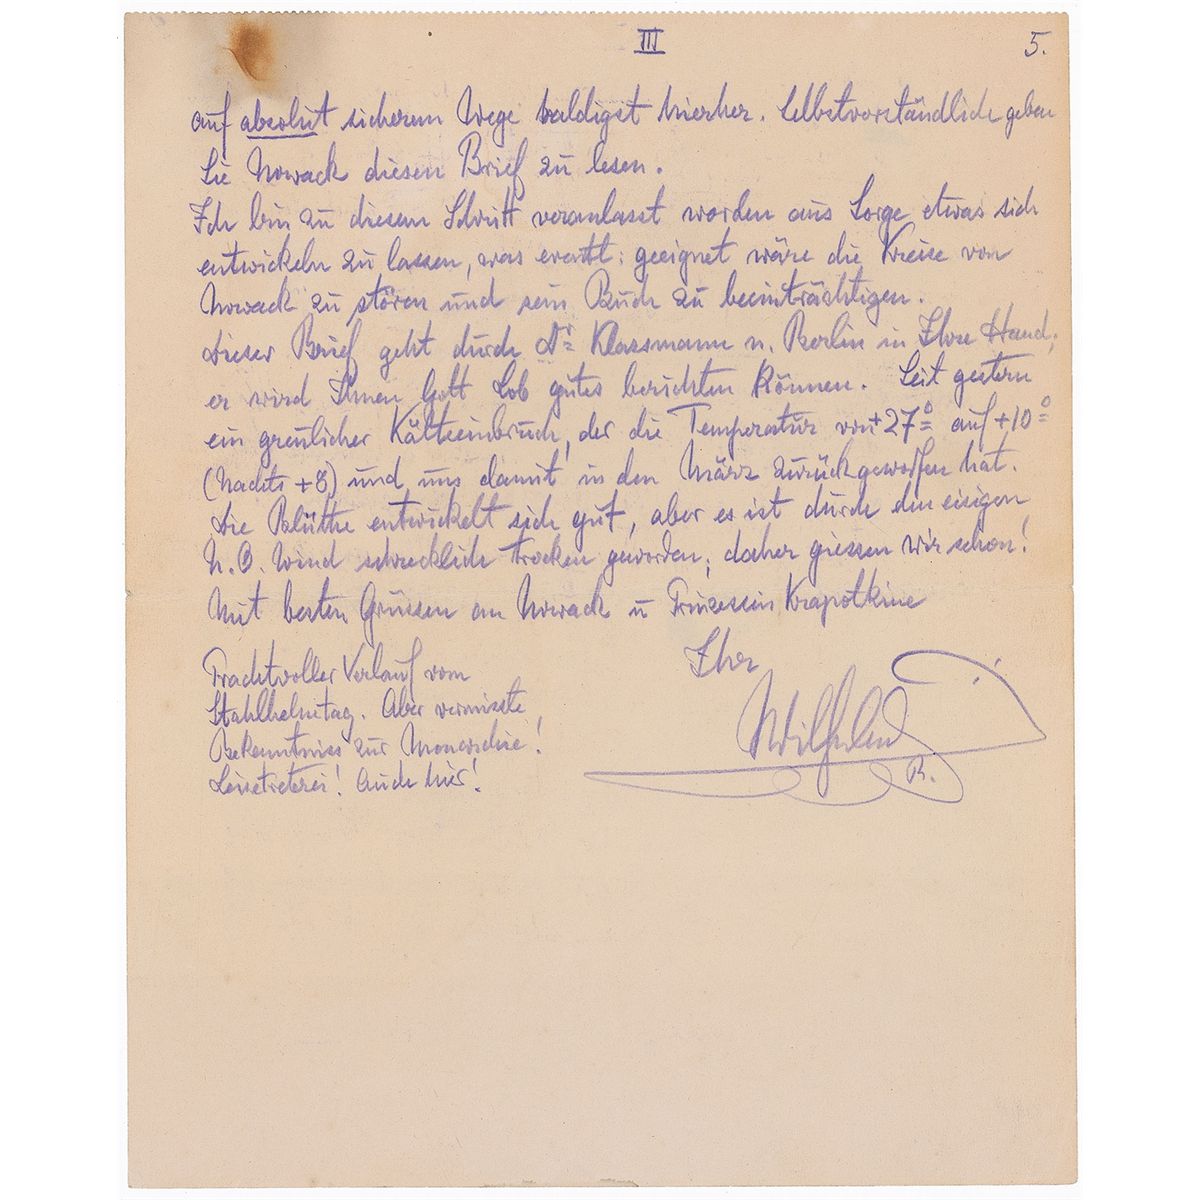 III
5.
auf absolut sicherem Wege baldigst hierher. Selbstverständlich geben
Sie Nowack diesen Brief zu lesen.
Ich bin zu diesem Schritt veranlasst worden aus Sorge etwas sich
entwickeln zu lassen, was evatl: geeignet wäre die Kreise von
Nowack zu stören und sein Buch zu beeinträchtigen.
Dieser Brief geht durch Dr Klassmann n. Berlin in Ihre Hand;
er wird Ihnen Gott Lob gutes berichten können. Seit gestern
ein greulicher Kälteeinbruch, der die Temperatur von +27° auf +10°
(Nachts +8) und uns damit in den März zurückgeworfen hat.
Die Blüthe entwickelt sich gut, aber es ist durch den eisigen
N. O. Wind schrecklich trocken geworden; daher giessen wir schon!
Mit besten Grüssen an Nowack u Prinzessin Krapotkine
Ihr
Wilhelm
I. R.
Prachtvoller Verlauf vom
Stahlhelmtag. Aber vermisste
Bekenntniss zur Monarchie!
Leisetreterei! Auch hier!